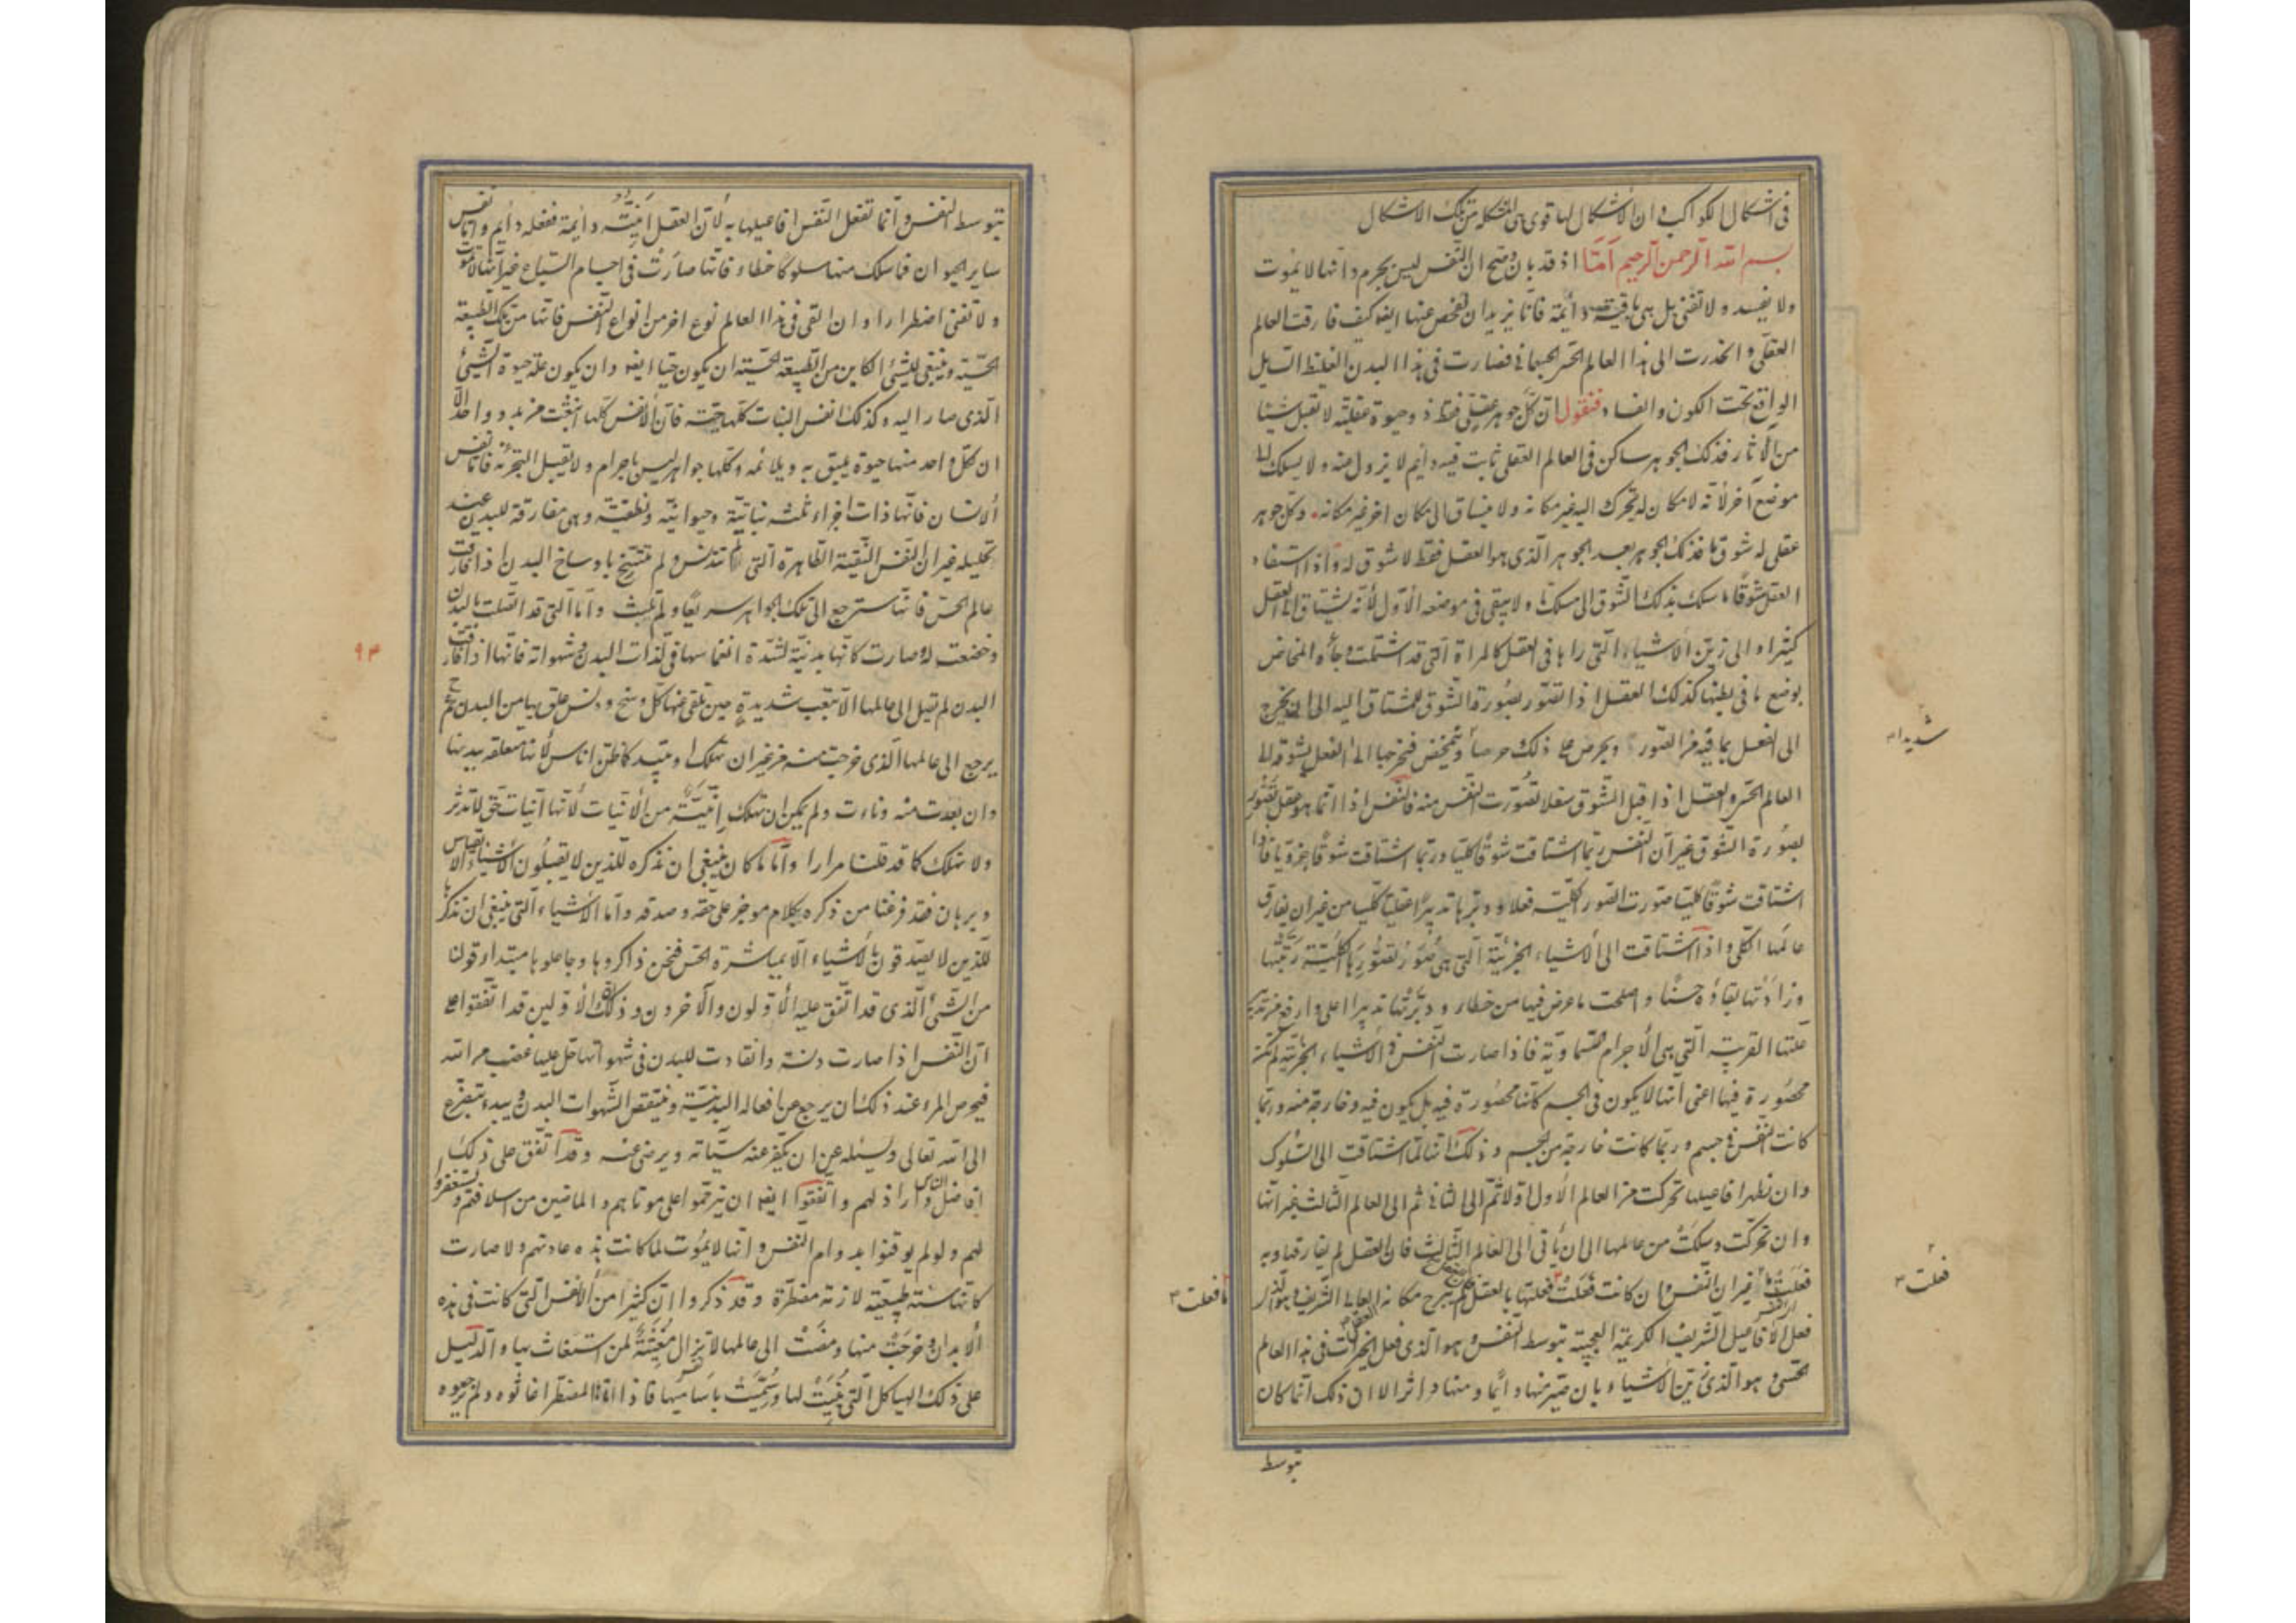 فى اشكال الكواكب و ان الاشكال لها قوى هى المتشكلة من تلك الاشكال
بسم الله الرحمن الرحيم امّا اذ قد بان و صح ان النفس ليس بجرم و انها لا تموت
و لا يفسد و لا تفنى بل هى باقية دائمة فانّا نريد ان نفحص عنها ايضا كيف فارقت العالم
العقلى و انحدرت الى هذا العالم الحسى الجسمانى فصارت فى هذا البدن الغليظ السايل
الواقع تحت الكون و الفساد فنقول ان كل جوهر عقلى فقط ذو حيوة عقلية لا تقبل شيئا
من الآثار فذلك الجوهر ساكن فى العالم العقلى ثابت فيه دايم لا يزول عنه و لا يسلك الى
موضع آخر لأنه لا مكان له يتحرك اليه غير مكانه و لا ينساق الى مكان اخر غير مكانه و كل جوهر
عقلى له شوق ما فذلك الجوهر بعد الجوهر الذى هو العقل فقط لا شوق له و اذا استفاد
العقل شوقا ما سلك بذلك الشوق الى مسلك ما و لا يبقى فى موضعه الاول لأنه يشتاق الى الفعل
كثيرا و الى زين الأشياء التى راها فى العقل كالمراة التى قد اشتملت و جأها المخاض
بوضع ما فى بطنها كذلك العقل اذا تصور بصورة الشوق للمشتاق اليه الى ان يخرج
الى الفعل بما فيه من الصور و يحرص على ذلك حرصا و يتمخض فيخرجها الى الفعل لشوقه الى
العالم الحسى و العقل اذا قبل الشوق سفلا تصورت النفس منه فالنفس اذا انما هو عقل تصور
بصورة الشوق غير ان النفس ربما اشتاقت شوقا كليا و ربما اشتاقت شوقا جزويا فاذا
اشتاقت شوقا كليا صورت الصور الكلية فعلا و دبرها تدبيرا عقليا كليا من غير ان يفارق
عالمها الكلى و اذا اشتاقت الى الأشياء الجزئية التى هى صور لصورها الكلية زينتها
و زادتها بقاؤه حسنا و اصلحت ما عرض فيها من خطاء و دبرتها تدبيرا اعلى و ارفع من تدبير
علتها القريبة التى هى الأجرام السماوية فاذا صارت النفس فى الأشياء الجزئية لم تكن
محصورة فيها اعنى انها لا يكون فى الجسم كانها محصورة فيه بل يكون فيه و خارجة منه و ربما
كانت النفس فى جسم و ربما كانت خارجة من الجسم و ذلك انها لما اشتاقت الى السلوك
و ان نظهر افاعيلها تحركت من العالم الأول اولا ثم الى الثانى ثم الى العالم الثالث غير انها
و ان تحركت و سلكت من عالمها الى ان يأتى الى العالم الثالث فان العقل لم يفارقها و به
فعلت غير ان النفس و ان كانت فعلت فعلتها بالعقل لم يبرح مكانه العالى الشريف و هو الذى
فعل الأفاعيل الشريفة الكريمة العجيبة بتوسط النفس و هو الذى فعل الخيرات فى هذا العالم
الحسى و هو الذى زين الأشياء بان صير منها دائما و منها داثرا الا ان ذلك انما كان
بتوسط
شديدا
فعلت
ما فعلت
بتوسط النفس و انما تفعل النفس افاعيلها به لأن العقل انيته دائمة ففعله دائم و اما نفس
ساير الحيوان فما سلك منها سلوكا خطاء فانها صارت فى اجسام السباع غير انها لا تموت
و لا تفنى اضطرارا و ان القى فى هذا العالم نوع اخر من انواع النفس فانها من تلك الطبيعة
الحسية و ينبغى للشيئ الكاين من الطبيعة الحسية ان يكون حيا ايضا و ان يكون علة حيوة الشيئ
الذى صار اليه و كذلك انفس النبات كلها حية فان الأنفس كلها انبعثت من بدو واحد الا
ان كل واحد منها حيوة يليق به و يلائمه و كلها جواهر ليس باجرام و لا يقبل التجزئة فاما نفس
الانسان فانها ذات اجزاء ثلثه نباتية و حيوانية و نطقية و هى مفارقة للبدن عند
تحليله غير ان النفس النقية الطاهرة التى لم تتدنس و لم تتسخ باوساخ البدن اذا فارقت
عالم الحس فانها سترجع الى تلك الجواهر سريعا و لم تلبث و اما التى قد اتصلت بالبدن
و خضعت له و صارت كانها بدنية لشدة انغماسها فى لذات البدن و شهواته فانها اذا فارقت
البدن لم تصل الى عالمها الا بتعب شديدة حين تلقى عنها كل وسخ و دنس علق بها من البدن ثم
يرجع الى عالمها الذى خرجت منه من غير ان تهلك او تبيد كما ظن اناس لأنها متعلقه ببدنها
و ان بعدت منه و نأت و لم يمكن ان تهلك انية من الأنيات لأنها انيات حق لا تدثر
و لا تهلك كما قد قلنا مرارا و اما ما كان ينبغى ان نذكره للذين لا يقبلون الأشياء الا بقياس
و برهان فقد فرغنا من ذكره بكلام موجز على حقه و صدقه و اما الأشياء التى ينبغى ان نذكرها
للذين لا يصدقون بالأشياء الا بمباشرة الحس فنحن ذاكروها و جاعلوها مبتداء قولنا
من الشئ الذى قد اتفق عليه الأولون و الآخرون و ذلك ان الأولين قد اتفقوا على
ان النفس اذا صارت دنسة و انقادت للبدن فى شهواتها حل عليها غضب من الله
فيحرص المرء عند ذلك ان يرجع عن افعاله البدنية و يبغض الشهوات البدن و يبدء يتضرع
الى الله تعالى و يسئله عن ان يكفر عنه سيآته و يرضى عنه و قد اتفق على ذلك
افاضل الناس و اراذلهم و اتفقوا ايضا ان يترحموا على موتاهم و الماضين من اسلافهم و يستغفروا
لهم و لو لم يوقنوا بدوام النفس و انها لا يموت لما كانت هذه عادتهم و لا صارت
كانها سنة طبيعية لازمة مضطرة و قد ذكروا ان كثيرا من الأنفس التى كانت فى هذه
الأبدان و خرجت منها و مضت الى عالمها لا يزال مغيثة لمن استغاث بها و الدليل
على ذلك الهياكل التى بنيت لها و سميت باساميها فاذا اتاها المضطر اغاثوه و لم يرجعوه
٩٣